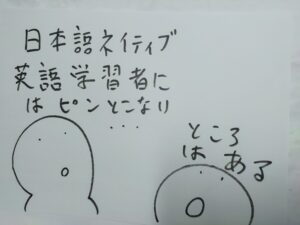 日本語ネイティブ
英語学習者に
はピンとこなり
...
ところ
はある